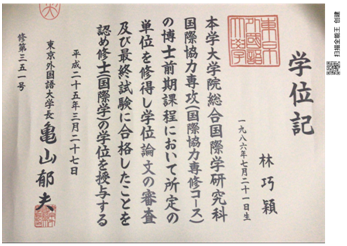 学位記
林巧穎
一九八六年七月二十一日生
本学大学院総合国際学研究科
国際協力専攻(国際協力専修コース)
の博士前期課程において所定の
単位を修得し学位論文の審査
及び最終試験に合格したことを
認め修士(国際学)の学位を授与する
平成二十五年三月二十七日
東京外国語大学長 亀山郁夫
修第三五一号
東京外国語大学
扫描全能王 创建